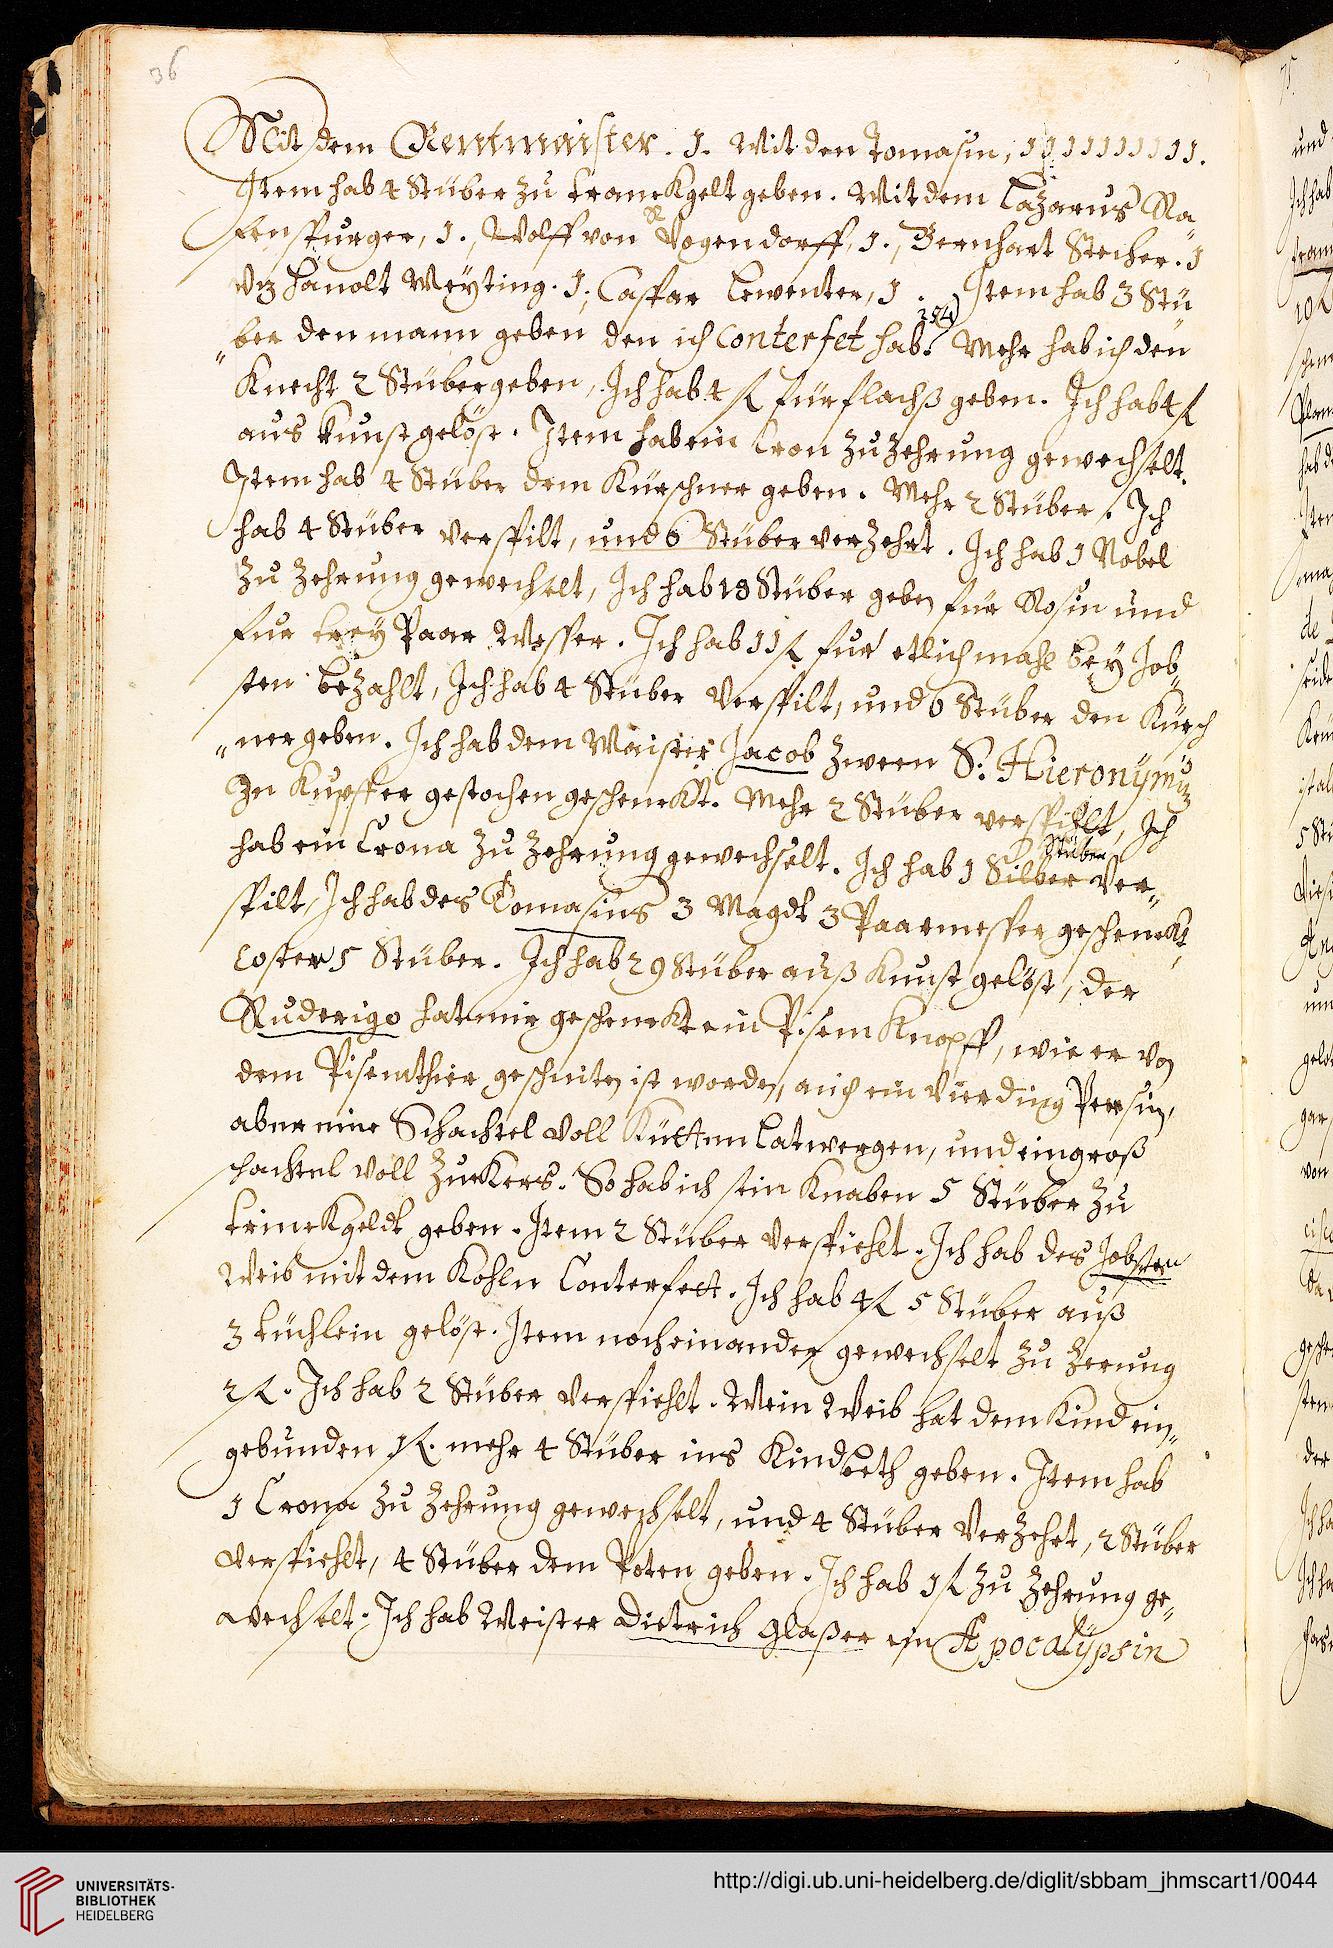 36
Mit dem Rentmaister. J. Mit den Tomasin, JJJJJJJJJJ.
Item hab 4 Stüber zu tranckgelt geben. Mit dem Lazarus Ra„
fenspurger, J., Wolff von Rogendorff, J., Bernhart Stecher. J
Utz Hanolt Meÿting. J; Caspar Lewenter, J. Item hab 3 Stü
„ber den mann geben den ich Conterfet hab. 254) Mehr hab ich den
Knecht 2 Stüber geben, Ich hab 4 fl für flachß geben. Ich hab 4 fl
aus kunst gelöst. Item hab ein Cron zu Zehrung gewechselt.
Item hab 4 Stüber dem Kürschner geben. Mehr 2 Stüber. Ich
hab 4 Stüber verspilt, und 6 Stüber verzehrt. Ich hab J Nobel
zu Zehrung gewechselt, Ich hab 18 Stüber geben für Rosin und
fur treÿ Paar Messer. Ich hab JJ fl fur etlich mahl beÿ Job„
sten bezahlt, Ich hab 4 Stüber verspilt, und 6 Stüber den Kürsch
„ner geben. Ich hab dem Maister Jacob zween S: Hieronÿmus
In Kupffer gestochen geschenckt. Mehr 2 Stüber verspielt, Ich
hab ein Crona zu Zehrung gewechselt. Ich hab J Silber Stüber ver„
spilt, Ich hab des Tomasins 3 Magdt 3 Paar messer geschenckt,
Coster 5 Stüber. Ich hab 29 Stüber auß Kunst gelöst, der
Ruderigo hat mir geschenckt ein Pisem Knopff, wie er von
dem Pisemthier geschniten ist worden, auch ein vierding Persin,
aber eine Schachtel voll Kütten Latwergen, und ein groß
schachtel voll Zuckers. So hab ich sein Knaben 5 Stüber zu
trinckgeldt geben. Item 2 Stüber verspiehlt. Ich hab des Jobsten
Weib mit dem Kohln Conterfett. Ich hab 4 fl 5 Stüber auß
3 tüchlein gelöst. Item nocheinander gewechselt zu Zerung
2 fl. Ich hab 2 Stüber verspiehlt. Mein Weib hat dem Kind ein„
gebunden J fl. mehr 4 Stüber ins Kindbeth geben. Item hab
J Crona zu Zehrung gewechselt, und 4 Stüber verzehrt, 2 Stüber
verspiehlt, 4 Stüber dem Poten geben. Ich hab J fl zu Zehrung ge„
wechselt. Ich hab Meister Dietrich Glaßer ein Apocalÿpsin
UNIVERSITÄTS-
BIBLIOTHEK
HEIDELBERG
http://digi.ub.uni-heidelberg.de/diglit/sbbam_jhmscart1/0044